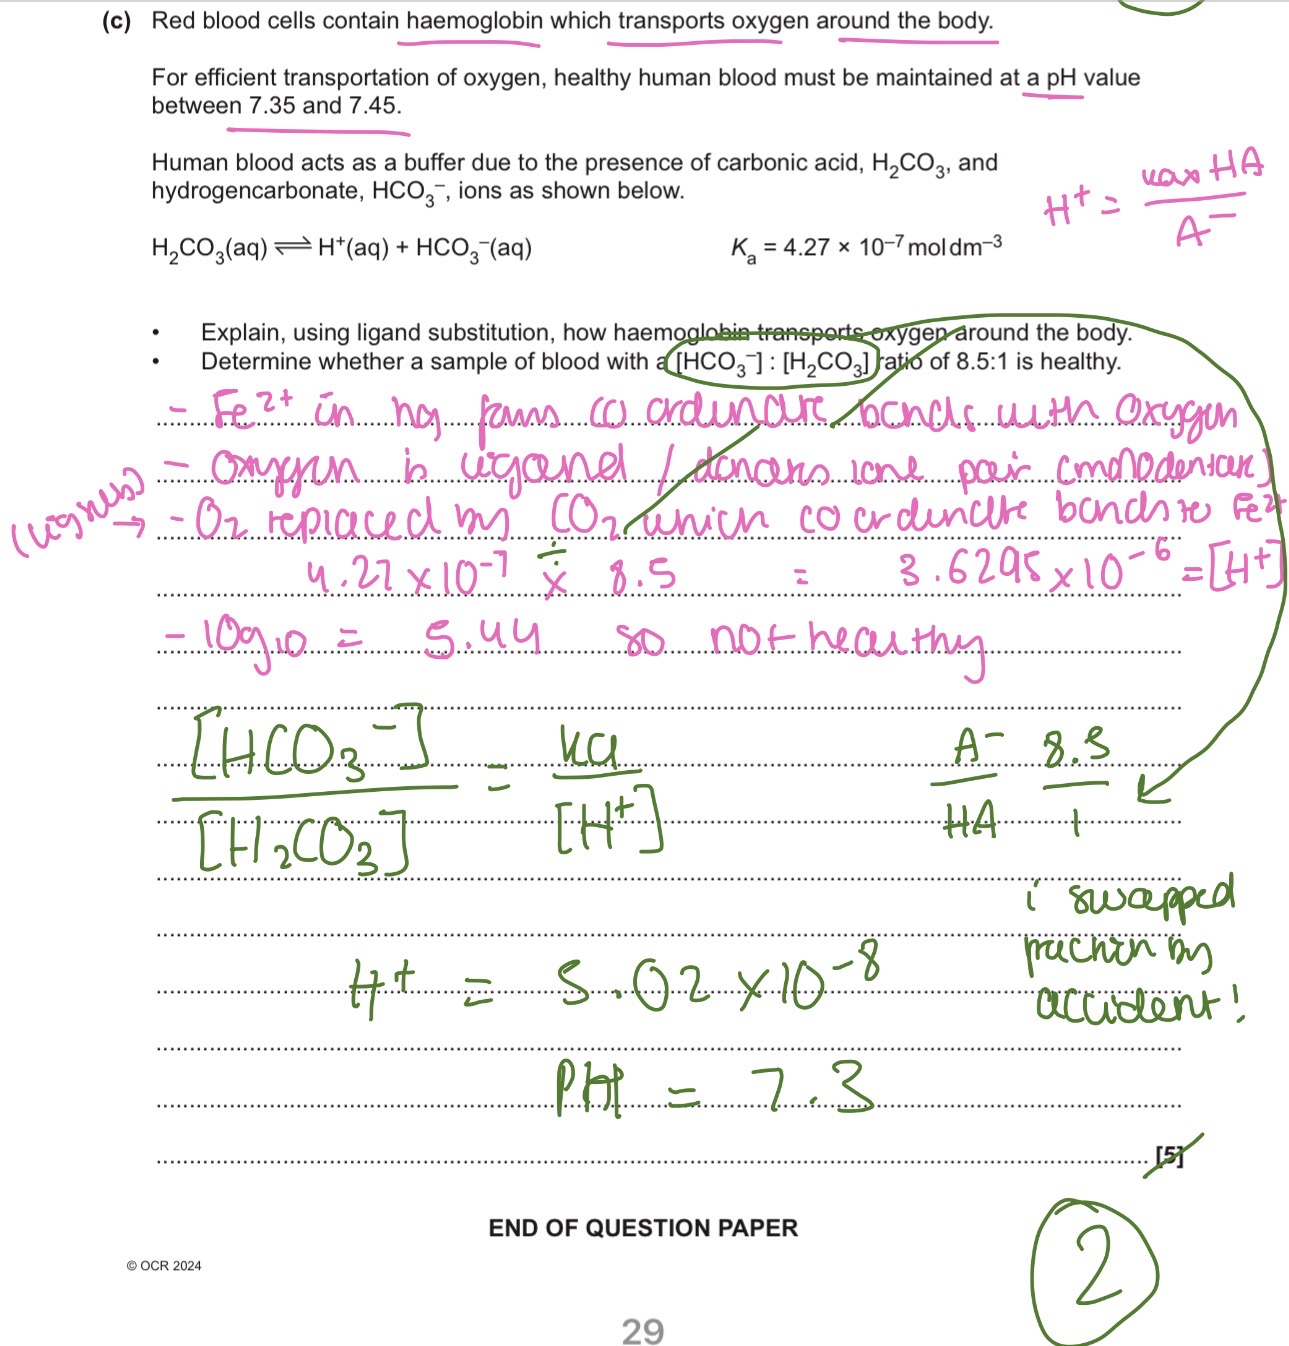 (c) Red blood cells contain haemoglobin which transports oxygen around the body.
For efficient transportation of oxygen, healthy human blood must be maintained at a pH value
between 7.35 and 7.45.
Human blood acts as a buffer due to the presence of carbonic acid, H₂CO₃, and
hydrogencarbonate, HCO₃⁻, ions as shown below.
H⁺ = kax HA / A⁻
H₂CO₃(aq) ⇌ H⁺(aq) + HCO₃⁻(aq) Kₐ = 4.27 × 10⁻⁷ mol dm⁻³
• Explain, using ligand substitution, how haemoglobin transports oxygen around the body.
• Determine whether a sample of blood with a [HCO₃⁻] : [H₂CO₃] ratio of 8.5:1 is healthy.
- Fe²⁺ in hg forms coordinate bonds with oxygen
- Oxygen is ligand / donates lone pair (monodentate)
(lig subs) → - O₂ replaced by CO₂ which coordinate bonds to Fe²⁺
4.27 × 10⁻⁷ ÷ × 8.5 = 3.6295 × 10⁻⁶ = [H⁺]
- log₁₀ = 5.44 so not healthy
[HCO₃⁻] / [H₂CO₃] = ka / [H⁺] A⁻ / HA 8.5 / 1
i swapped
fraction by
accident!
H⁺ = 5.02 × 10⁻⁸
PH = 7.3
[5]
2
END OF QUESTION PAPER
© OCR 2024
29